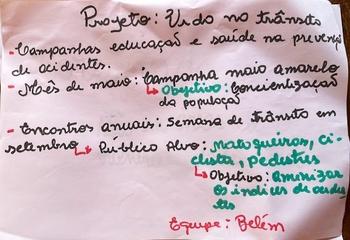 Projeto: Vida no trânsito
- Campanhas educação e saúde na prevenção
de acidentes.
- Mês de maio: Campanha maio amarelo
Objetivo: Concientização
da população
- Encontros anuais: Semana de trânsito em
setembro Público Alvo: Motoqueiros, ci-
clista, pedestres
Objetivo: Amenizar
os índices de aciden
tes
Equipe: Belém